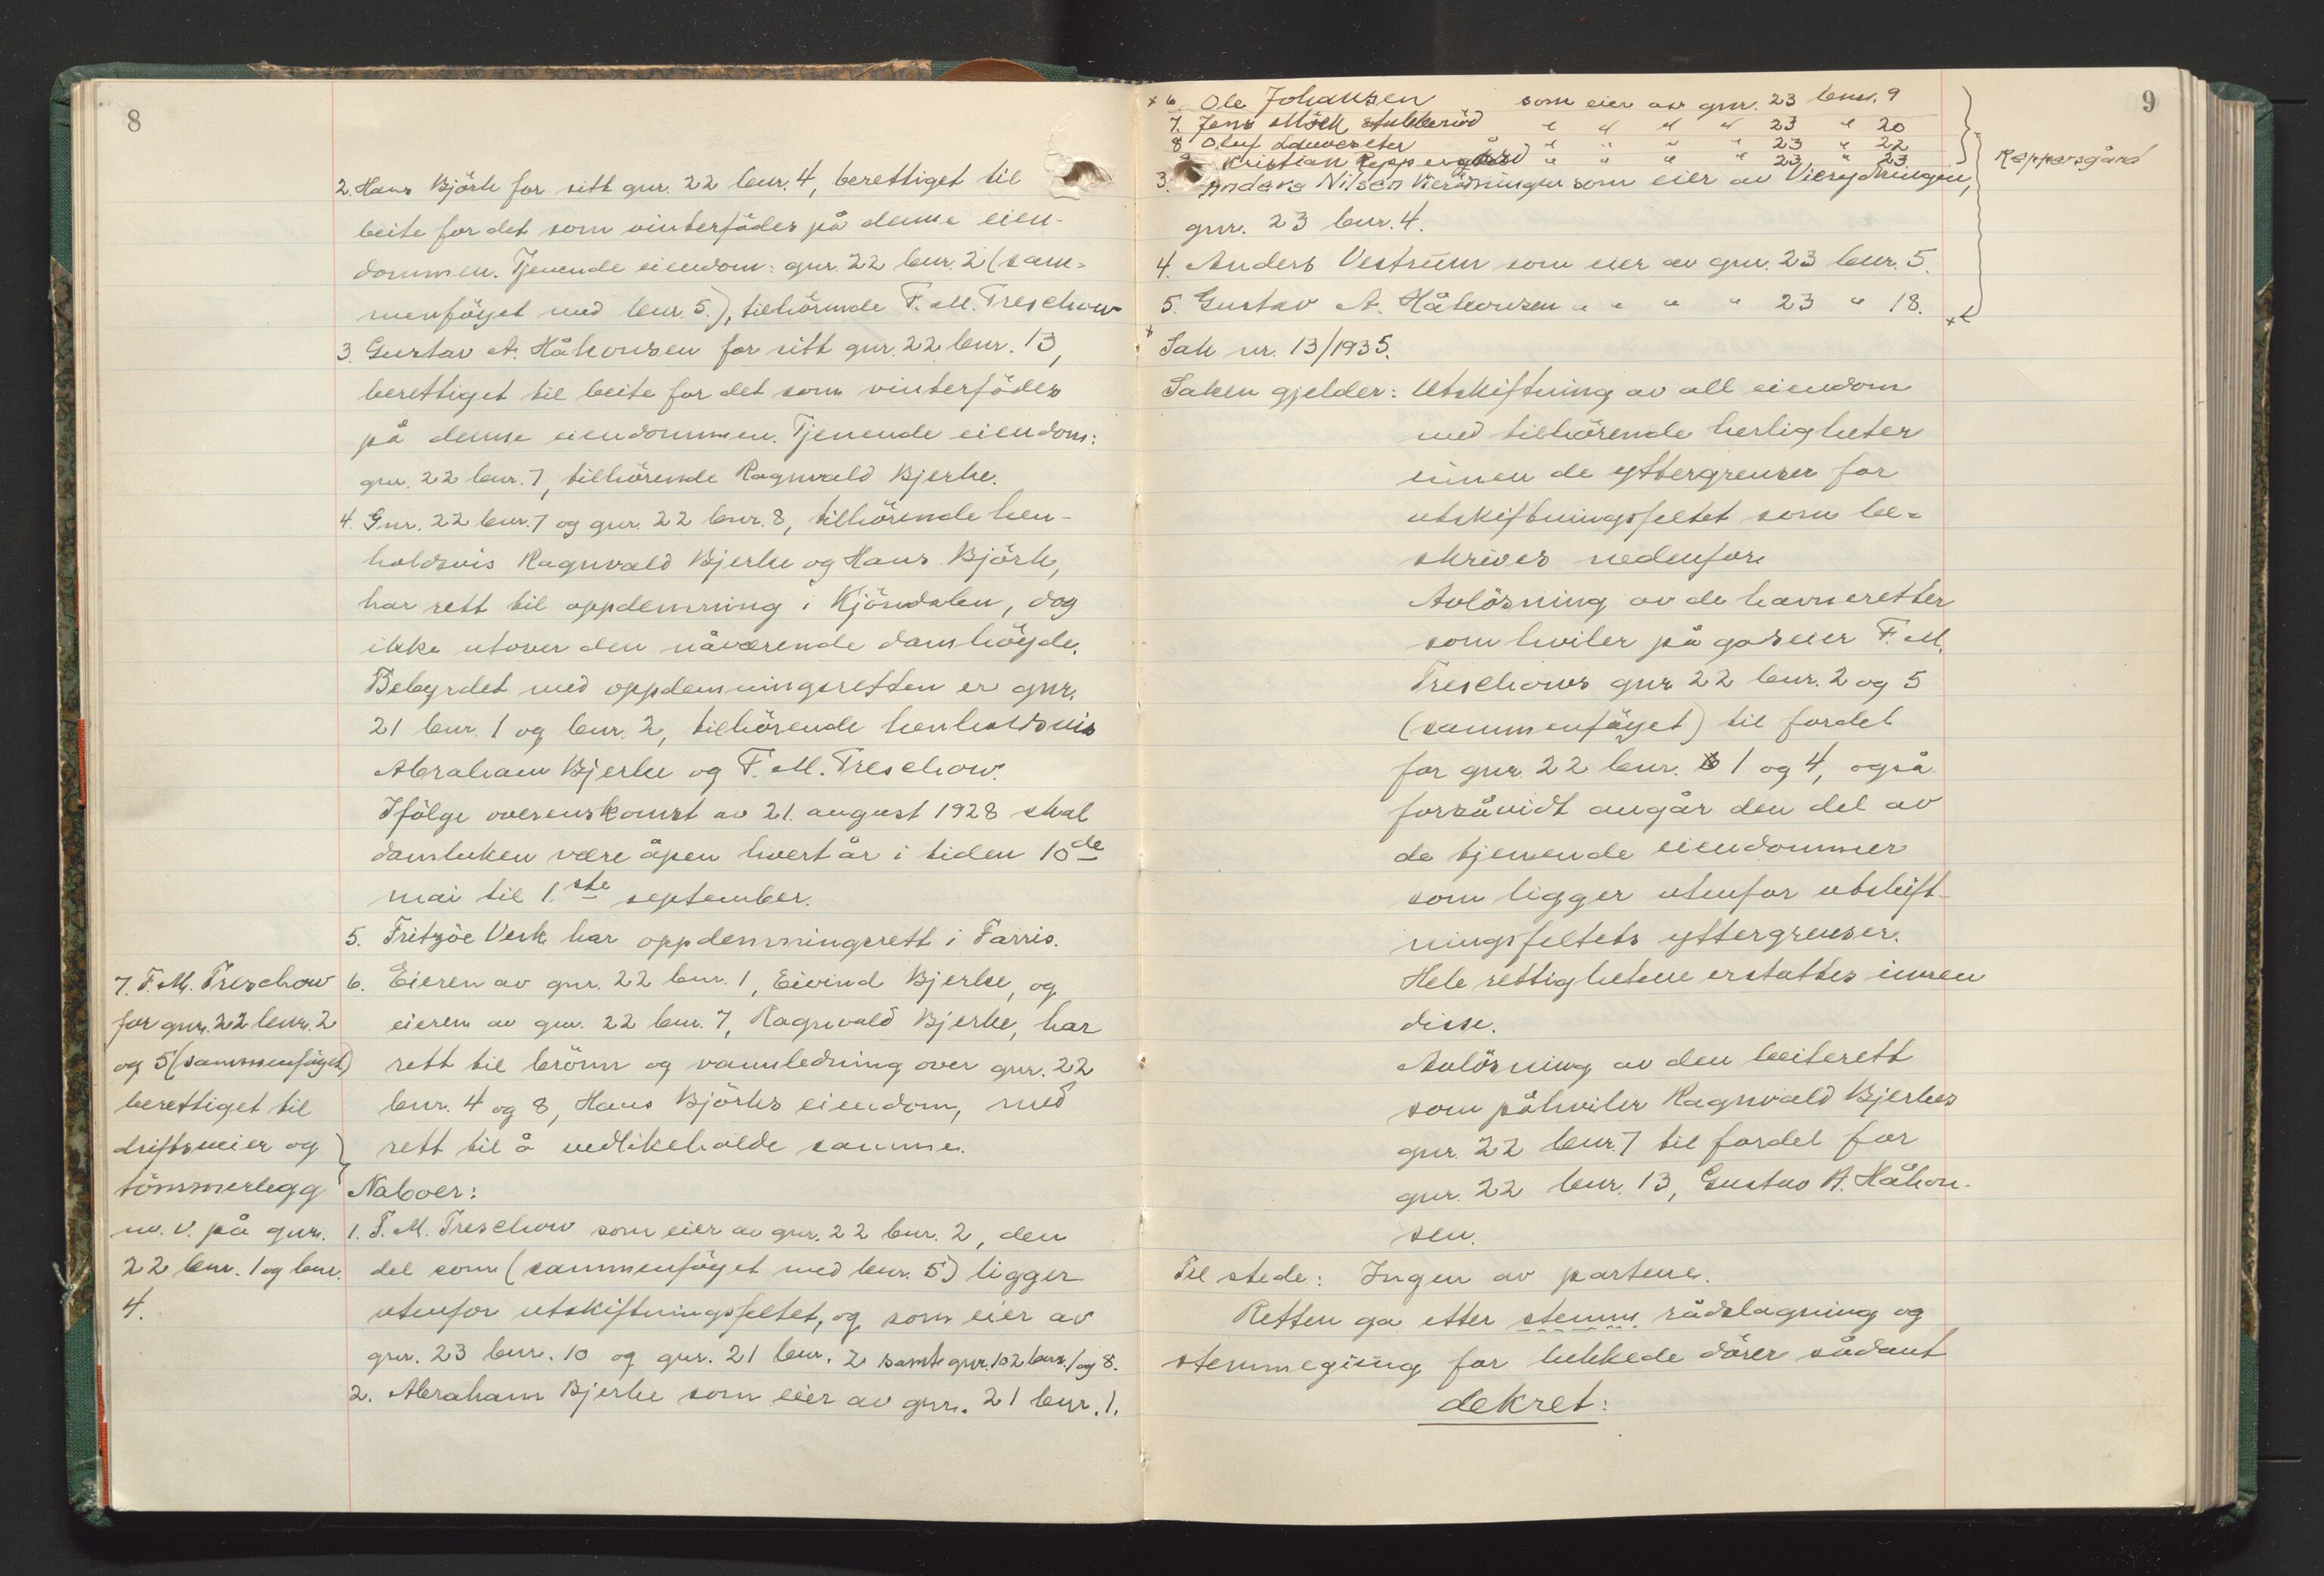 8
2. Hans Björk for sitt gnr. 22 bnr. 4, berettiget til
beite for det som vinterfödes på denne eien-
dommen. Tjenende eiendom: gnr. 22 bnr. 2 (sam-
menföyet med bnr. 5.), tilhörende F. M. Treschow
3. Gustav A. Håkonsen for sitt gnr. 22 bnr. 13,
berettiget til beite for det som vinterfödes
på denne eiendommen. Tjenende eiendom:
gnr. 22 bnr. 7, tilhörende Ragnvald Bjerke.
4. Gnr. 22 bnr. 7 og gnr. 22 bnr. 8, tilhörende hen-
holdsvis Ragnvald Bjerke og Hans Björk,
har rett til oppdemning i Kjöndalen, dog
ikke utover den nåværende damhöyde.
Bebyrdet med oppdemningsretten er gnr.
21 bnr. 1 og bnr. 2, tilhörende henholdsvis
Abraham Bjerke og F. M. Treschow.
Ifölge overenskomst av 21. august 1928 skal
damluken være åpen hvert år i tiden 10de
mai til 1.ste september.
5. Fritzöe Verk har oppdemningsrett i Farris.
6. Eieren av gnr. 22 bnr. 1, Eivind Bjerke, og
eieren av gnr. 22 bnr. 7, Ragnvald Bjerke, har
rett til brönn og vannledning over gnr. 22
bnr. 4 og 8, Hans Björks eiendom, med
rett til å vedlikeholde samme.
7. F. M. Treschow
for gnr. 22 bnr. 2
og 5 (sammenföyet)
berettiget til
driftsveier og
tömmerlegg
m. v. på gnr.
22 bnr. 1 og bnr.
4.
Naboer:
1. F. M. Treschow som eier av gnr. 22 bnr. 2, den
del som (sammenföyet med bnr. 5) ligger
utenfor utskiftningsfeltet, og som eier av
gnr. 23 bnr. 10 og gnr. 21 bnr. 2 samt gnr. 102 bnr. 1 og 8.
2. Abraham Bjerke som eier av gnr. 21 bnr. 1.
9
x 6. Ole Johansen som eier av gnr. 23 bnr. 9
7. Jens Mörk Stubberöd " " " " 23 " 20
8 Oluf " " " " 23 " 22
9 Kristian Reppersgård " " " " 23 " 23
Reppersgård
3. Anders Nilsen som eier av Vierydningen,
gnr. 23 bnr. 4.
4. Anders Vestrum som eier av gnr. 23 bnr. 5.
5. Gustav A. Håkonsen " " " " 23 " 18.
x
Sak nr. 13/1935.
Saken gjelder: Utskiftning av all eiendom
med tilhörende herligheter
innen de yttergrenser for
utskiftningsfeltet som be-
skrives nedenfor.
Avlösning av de havneretter
som hviler på godseier F. M.
Treschows gnr. 22 bnr. 2 og 5
(sammenföyet) til fordel
for gnr. 22 bnr. 1 og 4, også
forsåvidt angår den del av
de tjenende eiendommer
som ligger utenfor utskift-
ningsfeltets yttergrenser.
Hele rettighetene erstattes innen
disse.
Avlösning av den beiterett
som påhviler Ragnvald Bjerkes
gnr. 22 bnr. 7 til fordel for
gnr. 22 bnr. 13, Gustav A. Håkon-
sen.
Til stede: Ingen av partene.
Retten ga etter stemm rådslagning og
stemmegiving for lukkede dörer sådant
dekret: